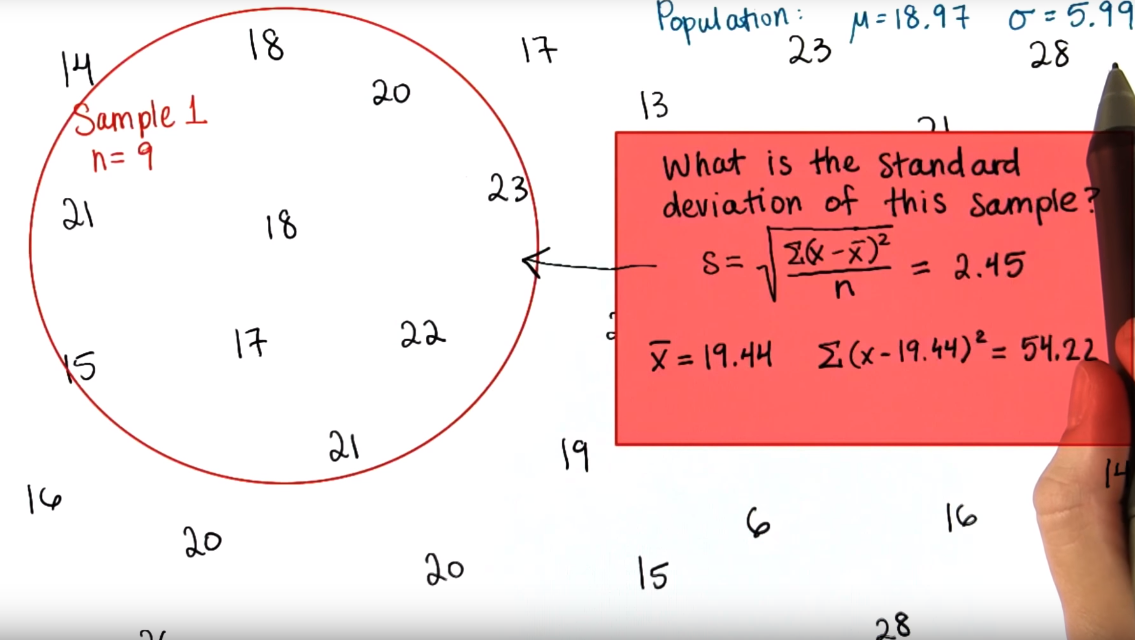 Population: μ = 18.97 σ = 5.99
14
18
17
23
28
20
13
Sample 1
n = 9
21
21
18
23
What is the standard
deviation of this sample?
S = √(Σ(x - x̄)²/n) = 2.45
x̄ = 19.44 Σ(x - 19.44)² = 54.22
15
17
22
21
19
14
16
20
20
15
6
16
28